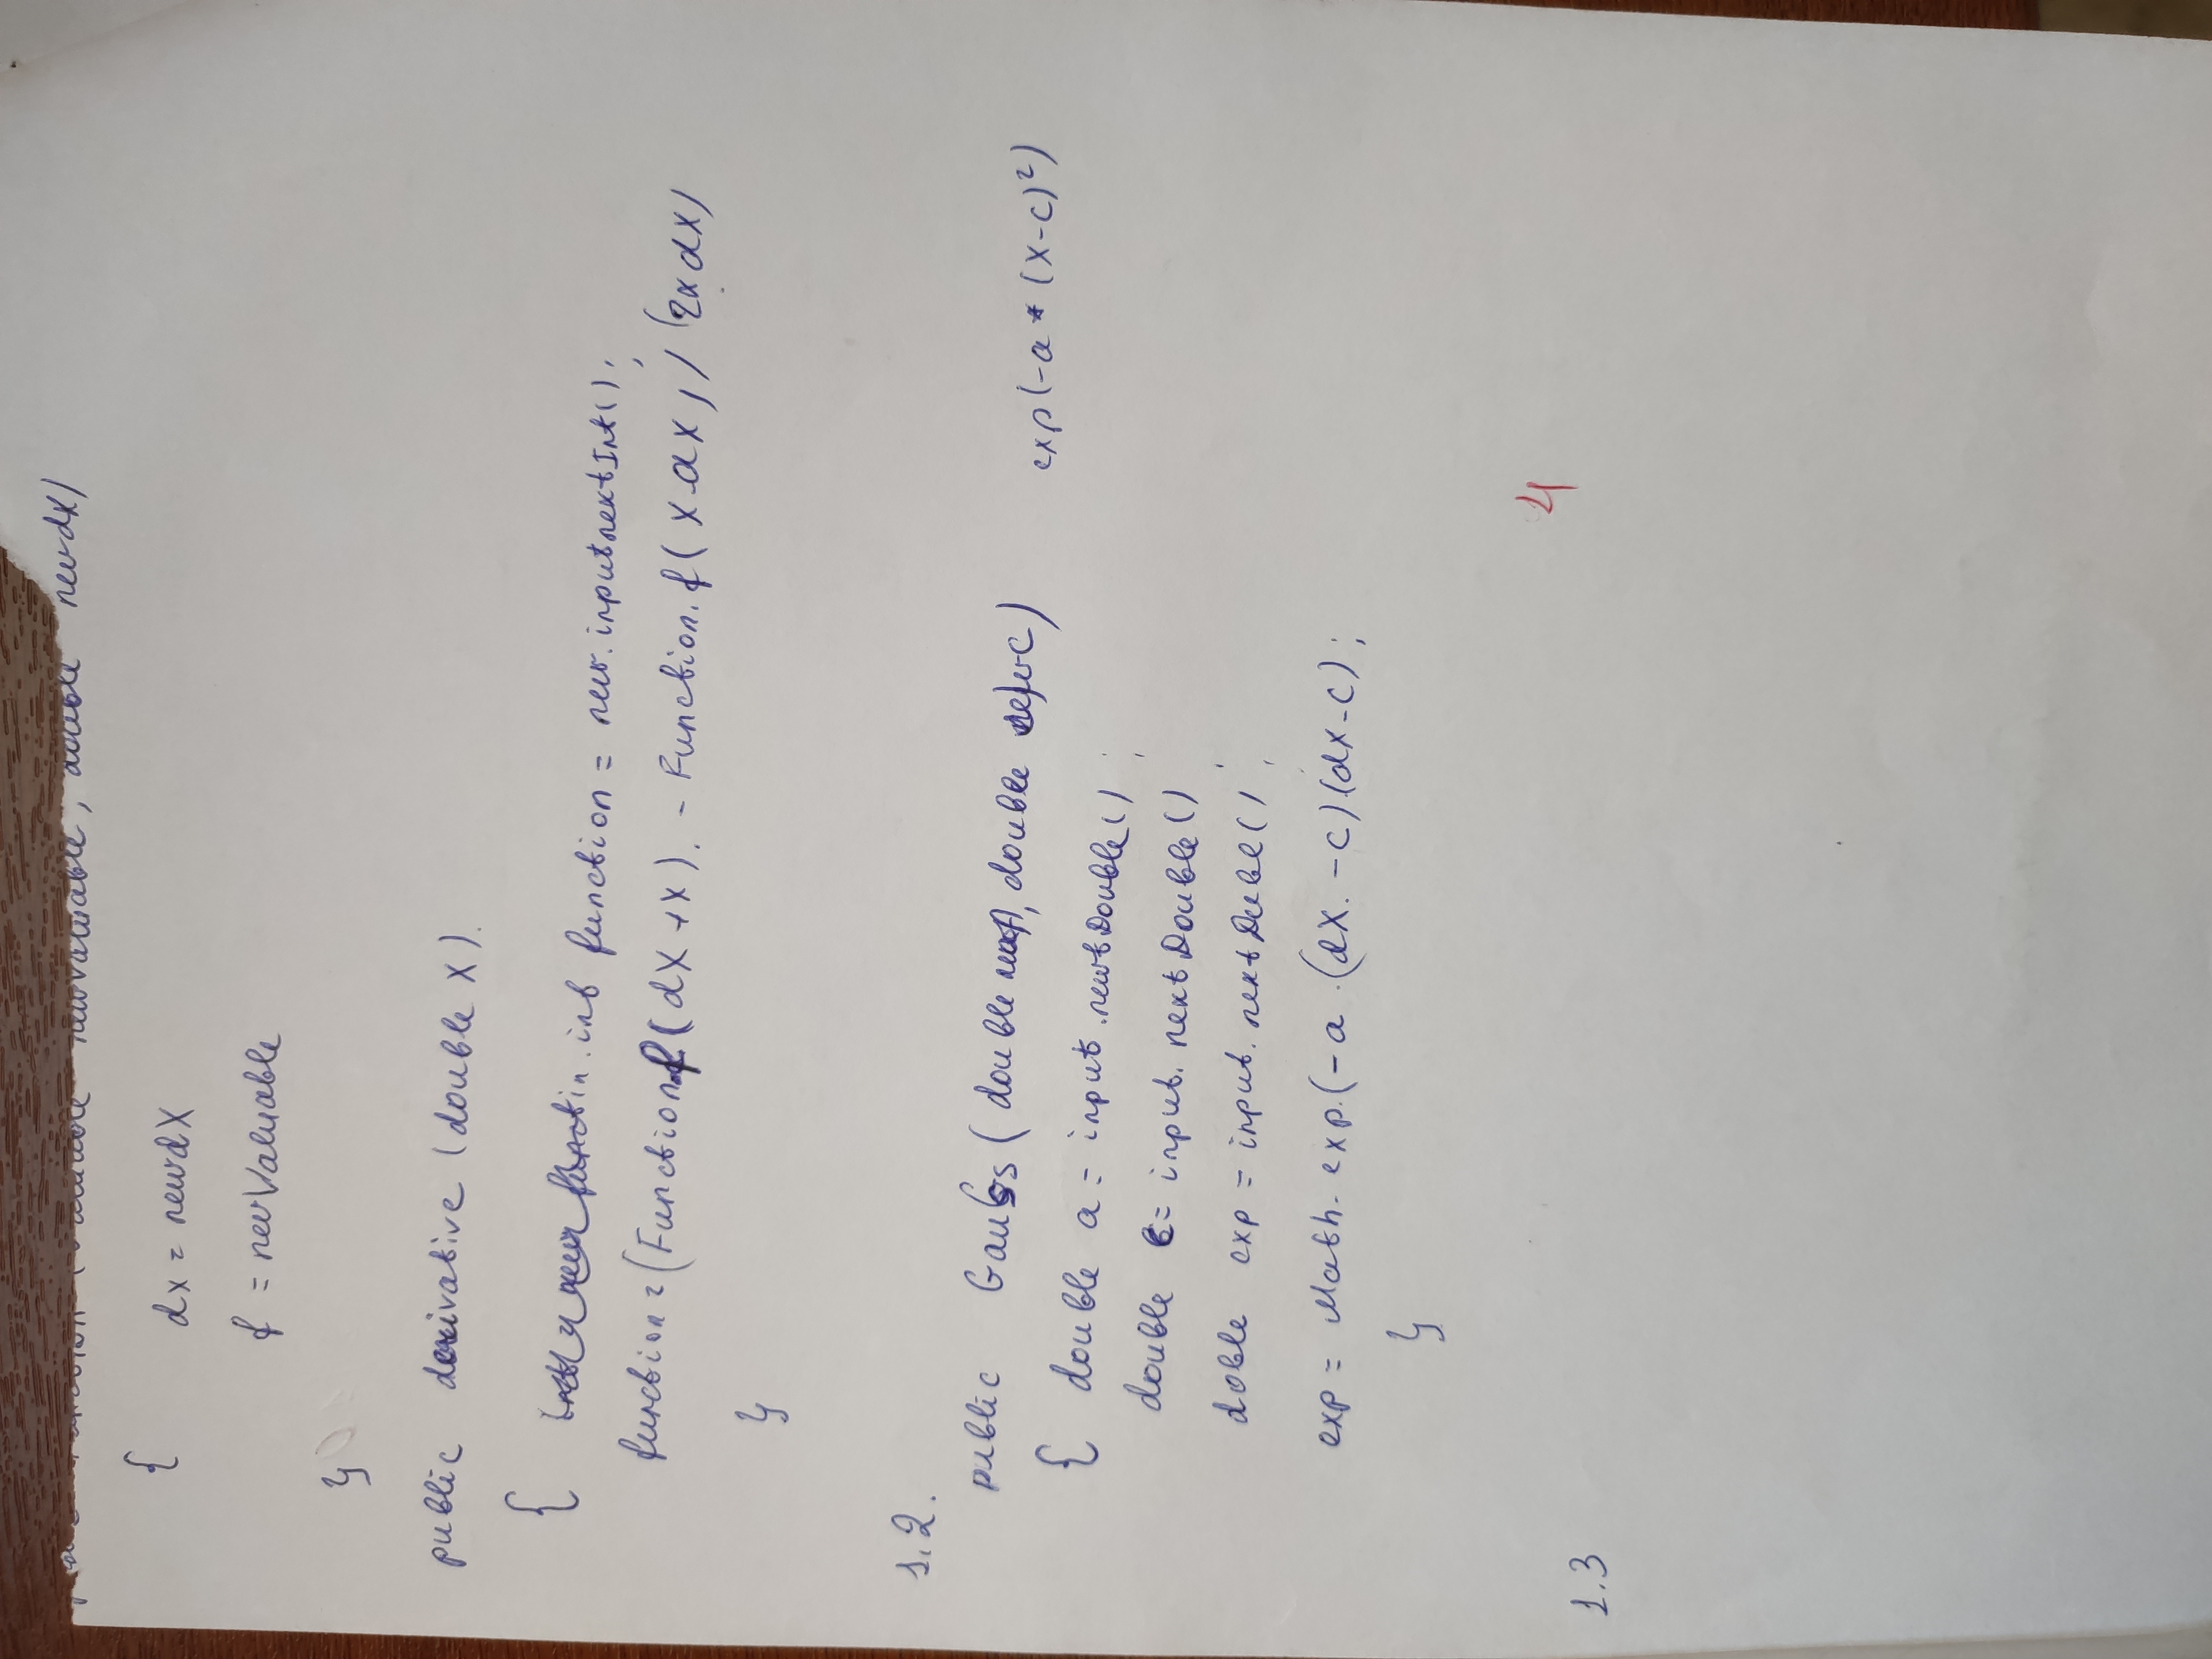 newValuable, double newdX)
{ dx = newdX
f = newValuable
}
public derivative (double X).
{ int function = new. inputnextInt();
function = (Function.f(dX+x). - Function.f(X-dX)/(2x dX)
}
1.2.
public Gauss (double newA, double newC) exp(-a * (X-c)²)
{ double a = input.newtDouble();
double c = input. nextDouble()
doble exp = input. nextDubl();
exp = Math. exp.(-a .(dX. -c).(dx-c);
}
4
1.3